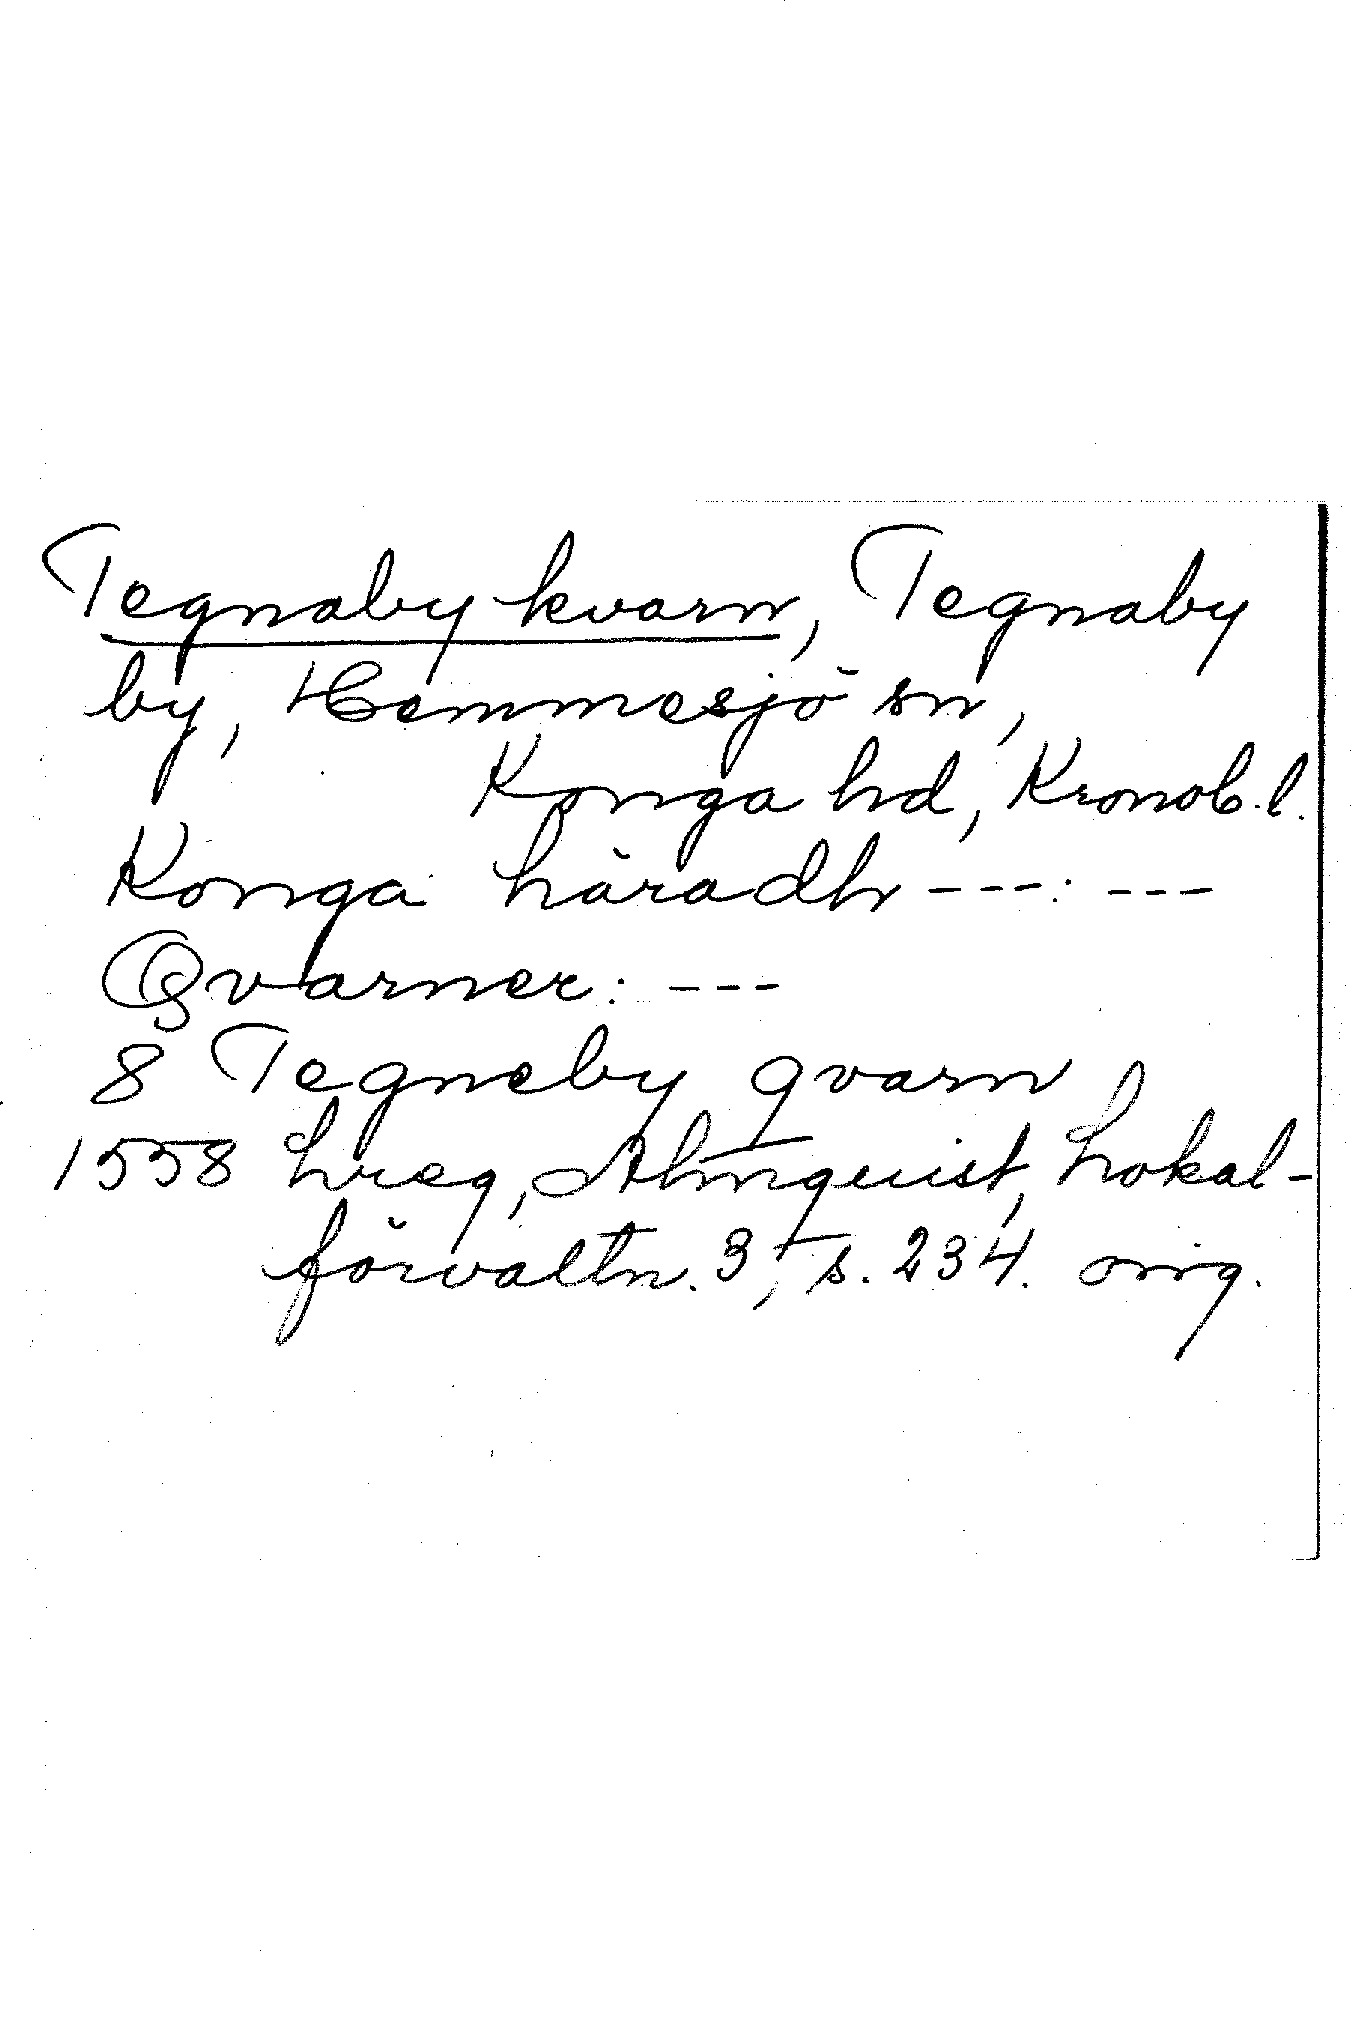 Tegnaby kvarn, Tegnaby
by, Hemmesjö sn,
Konga hd, Kronob. l.
Konga häradh ---: ---
Qvarner: ---
8 Tegneby qvarn
1558 hreg, Almquist, Lokal-
förvaltn. 3, s. 234. orig.